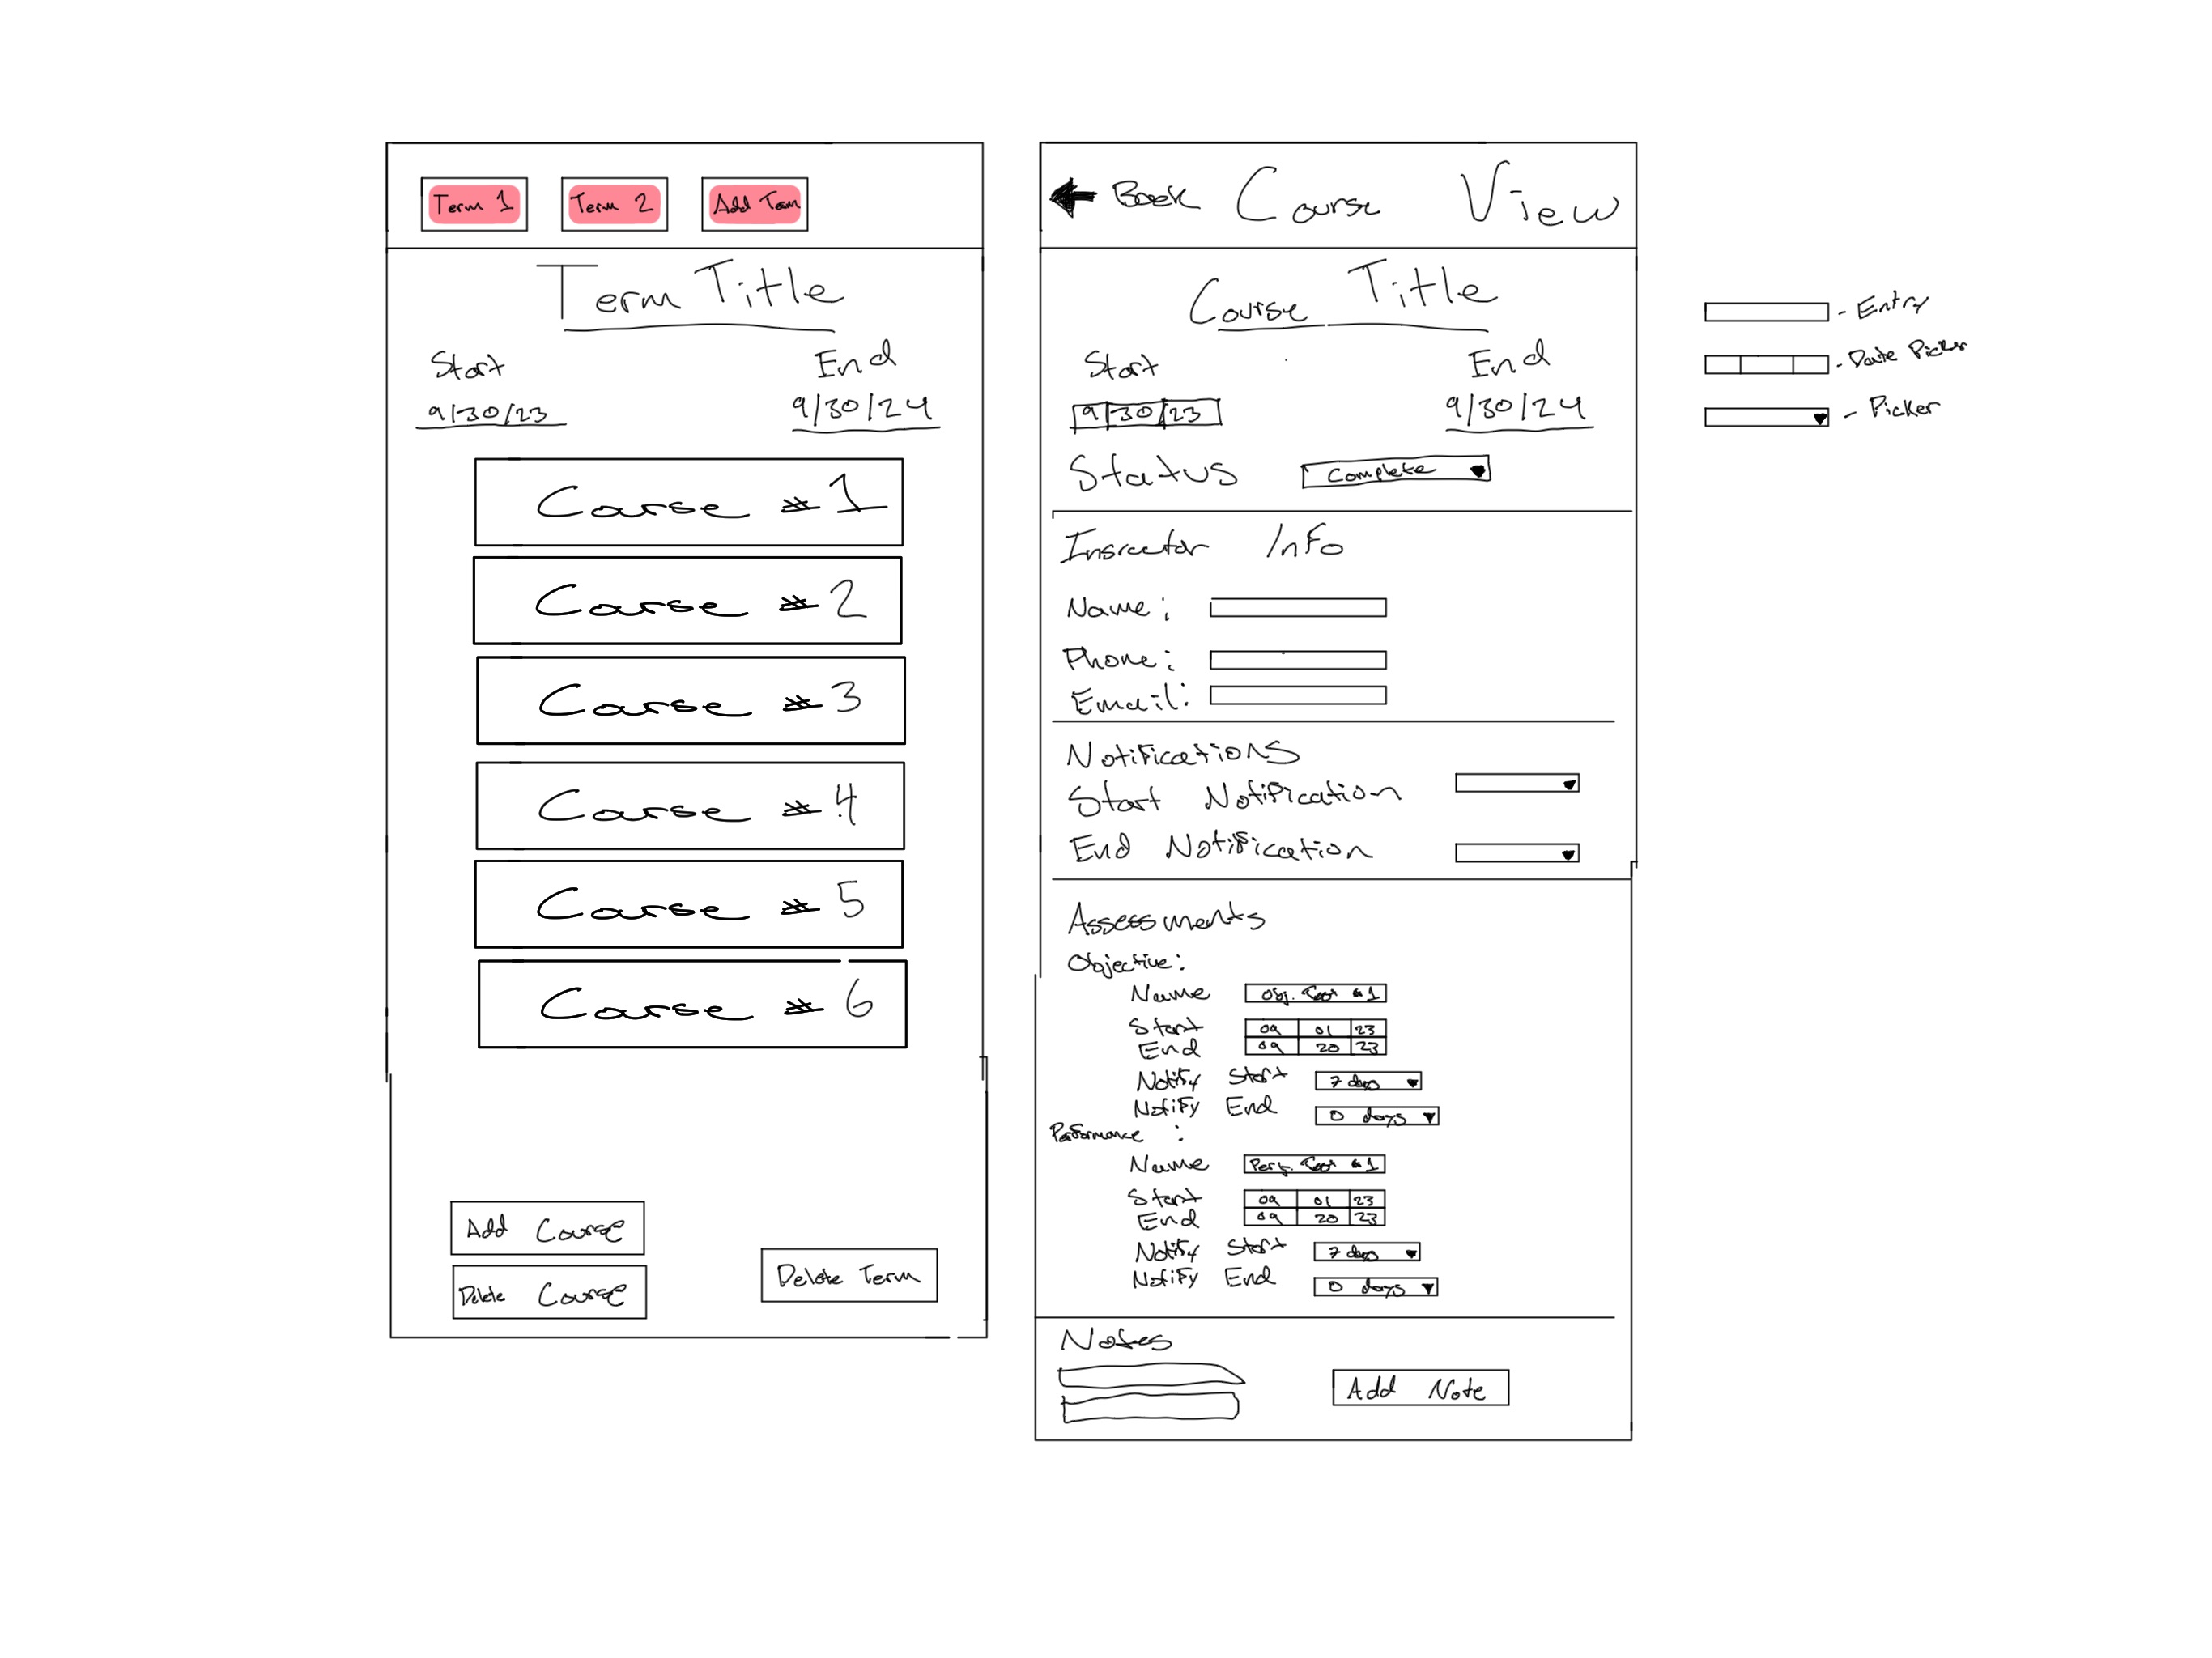 Term 1
Term 2
Add Term
Term Title
Start
End
9/30/23
9/30/24
Course #1
Course #2
Course #3
Course #4
Course #5
Course #6
Add Course
Delete Course
Delete Term
Back
Course View
Course Title
Start
End
9/30/23
9/30/24
Status
Complete
Info
Name:
Phone:
Email:
Notifications
Start Notification
End Notification
Assessments
Objective:
Name Obj. #1
Start 09 01 23
End 09 20 23
Notify Start 7 days
Notify End 0 days
Performance :
Name Perf. #1
Start 09 01 23
End 09 20 23
Notify Start 7 days
Notify End 0 days
Notes
Add Note
- Entry
- Date Picker
- Picker